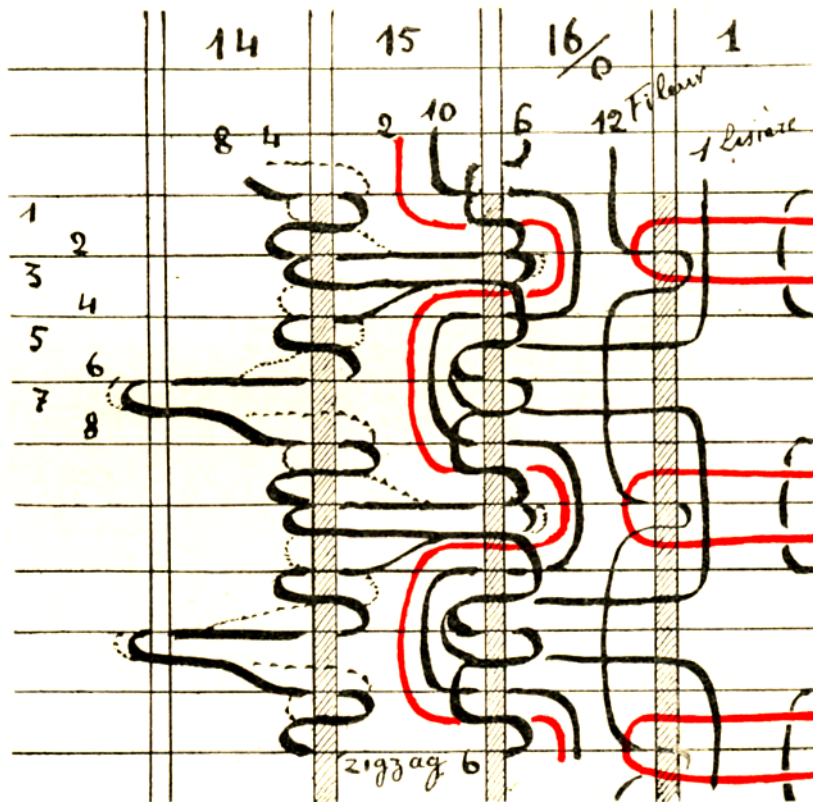 14 15 16/0 1
8 4 2 10 6 12 Fileur 1 Lisière
1
2
3
4
5
6
7
8
zigzag 6